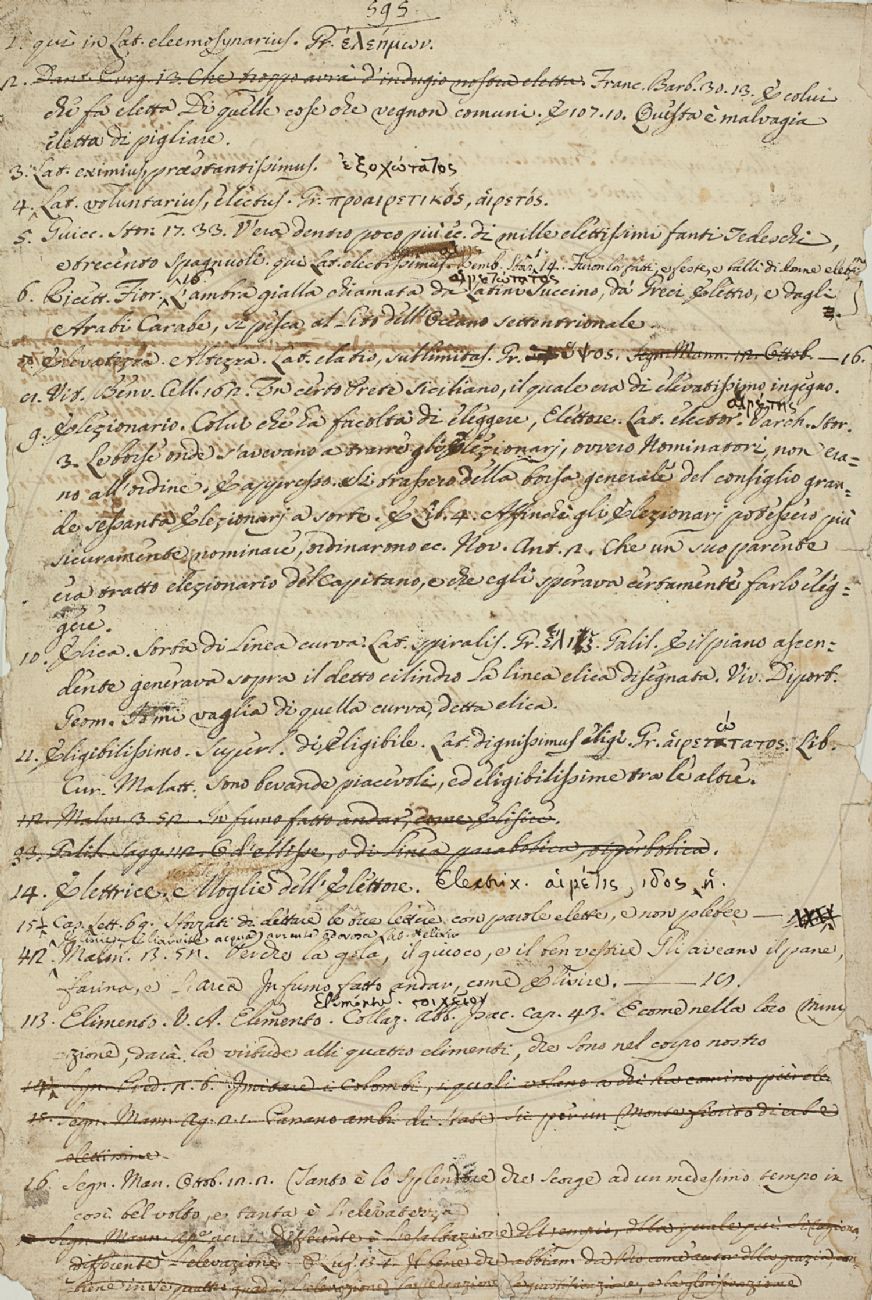 595
1. qui in Lat. eleemosynarius. Gr. ἐλεήμων.
2. Dant. Purg. 13. Che troppo avrà d'indugio nostra eletta. Franc. Barb. 30. 13. E colui
che fa eletta Di quelle cose che vegnon comuni. E 107. 10. Questa è malvagia
eletta di pigliare.
3. Lat. eximius, præstantissimus. ἐξοχώτατος
4. Lat. voluntarius, electus. Gr. προαιρετικός, αἱρετός.
5. Guicc. Stor. 17. 33. V'era dentro poco più ec. di mille elettissimi fanti Tedeschi,
e trecento spagnuoli. qui Lat. electissimus. Bemb. Stor. 14. Furonla fatti, e feste, e balli di donne elettissime
αἱρετώτατος
6. Ricett. Fior. 16 L'ambra gialla chiamata da Latini Succino, da' Greci Elettro, e dagli
Arabi Carabe, si pesca al Lito dell'Oceano settentrionale
Elevatezza. Altezza. Lat. elatio, sublimitas. Gr. ὕψος. Segn. Mann. 12. Ottob. — 16.
Vit. Benv. Cell. 162. Un certo Prete siciliano, il quale era di elevatissimo ingegno.
αἱρέτης
9. Elezionario. Colui che ha facoltà di eleggere, Elettore. Lat. elector. Varch. Stor.
3. Le borse onde s'avevano a trarre gli Elezionarj, ovvero Nominatori, non era=
no all'ordine. E appresso. Si trassero della borsa generale del consiglio gran=
de sessanta Elezionarj a sorte. E Lib. 4. Affinchè gli Elezionarj potessero più
sicuramente nominare, ordinarono ec. Nov. Ant. 2. Che un suo parente
era tratto elezionario del Capitano, e che egli sperava certamente farlo eleg=
gere.
10. Elica. Sorta di Linea curva. Lat. spiralis. Gr. ἕλιξ. Galil. E il piano ascen=
dente generava sopra il detto cilindro la linea elica disegnata. Viv. Diport.
Geom. mi vaglia di quella curva, detta elica.
11. Eligibilissimo. Superl. di Eligibile. Lat. dignissimus eligi. Gr. αἱρετώτατος. Lib.
Cur. Malatt. Sono bevande piacevoli, ed eligibilissime tra le altre.
12. Malm. 3. 52. In fumo fatto andar, come Elisire.
13. Galil. Sagg. 112. O d'ellisse, o di linea parabolica, o iperbolica.
14. Elettrice. Moglie dell'Elettore. Electrix. αἱρέτις, ιδος, ἡ.
15 Cap. Lett. 69. Sforzati di dettare le tue lettere con parole elette, e non plebee —
12. Malm. 13. 52. Perchè la gola, il giuoco, e il ben vestire Gli aveano il pane,
farina, e L'arca In fumo fatto andar, come Elivire. — 19.
Elementum. στοιχεῖον
113. Elimento. V. A. Elemento. Collaz. Abb. Isac. cap. 43. E come nella loro muni
zione, darà la virtude alli quattro elimenti, che sono nel corpo nostro
14. Segn. Pred. 2. 6. Imitare i Colombi, i quali volano a chi ha comino più ele
15. Segn. Mann. Ag. 2. 1. Parano ambi di state
elettissime.
16. Segn. Man. Ottob. 12. 2. Tanto è lo splendore che scorge ad un medesimo tempo in
così bel volto, e tanta è l'elevatezza
differente l'elevazione